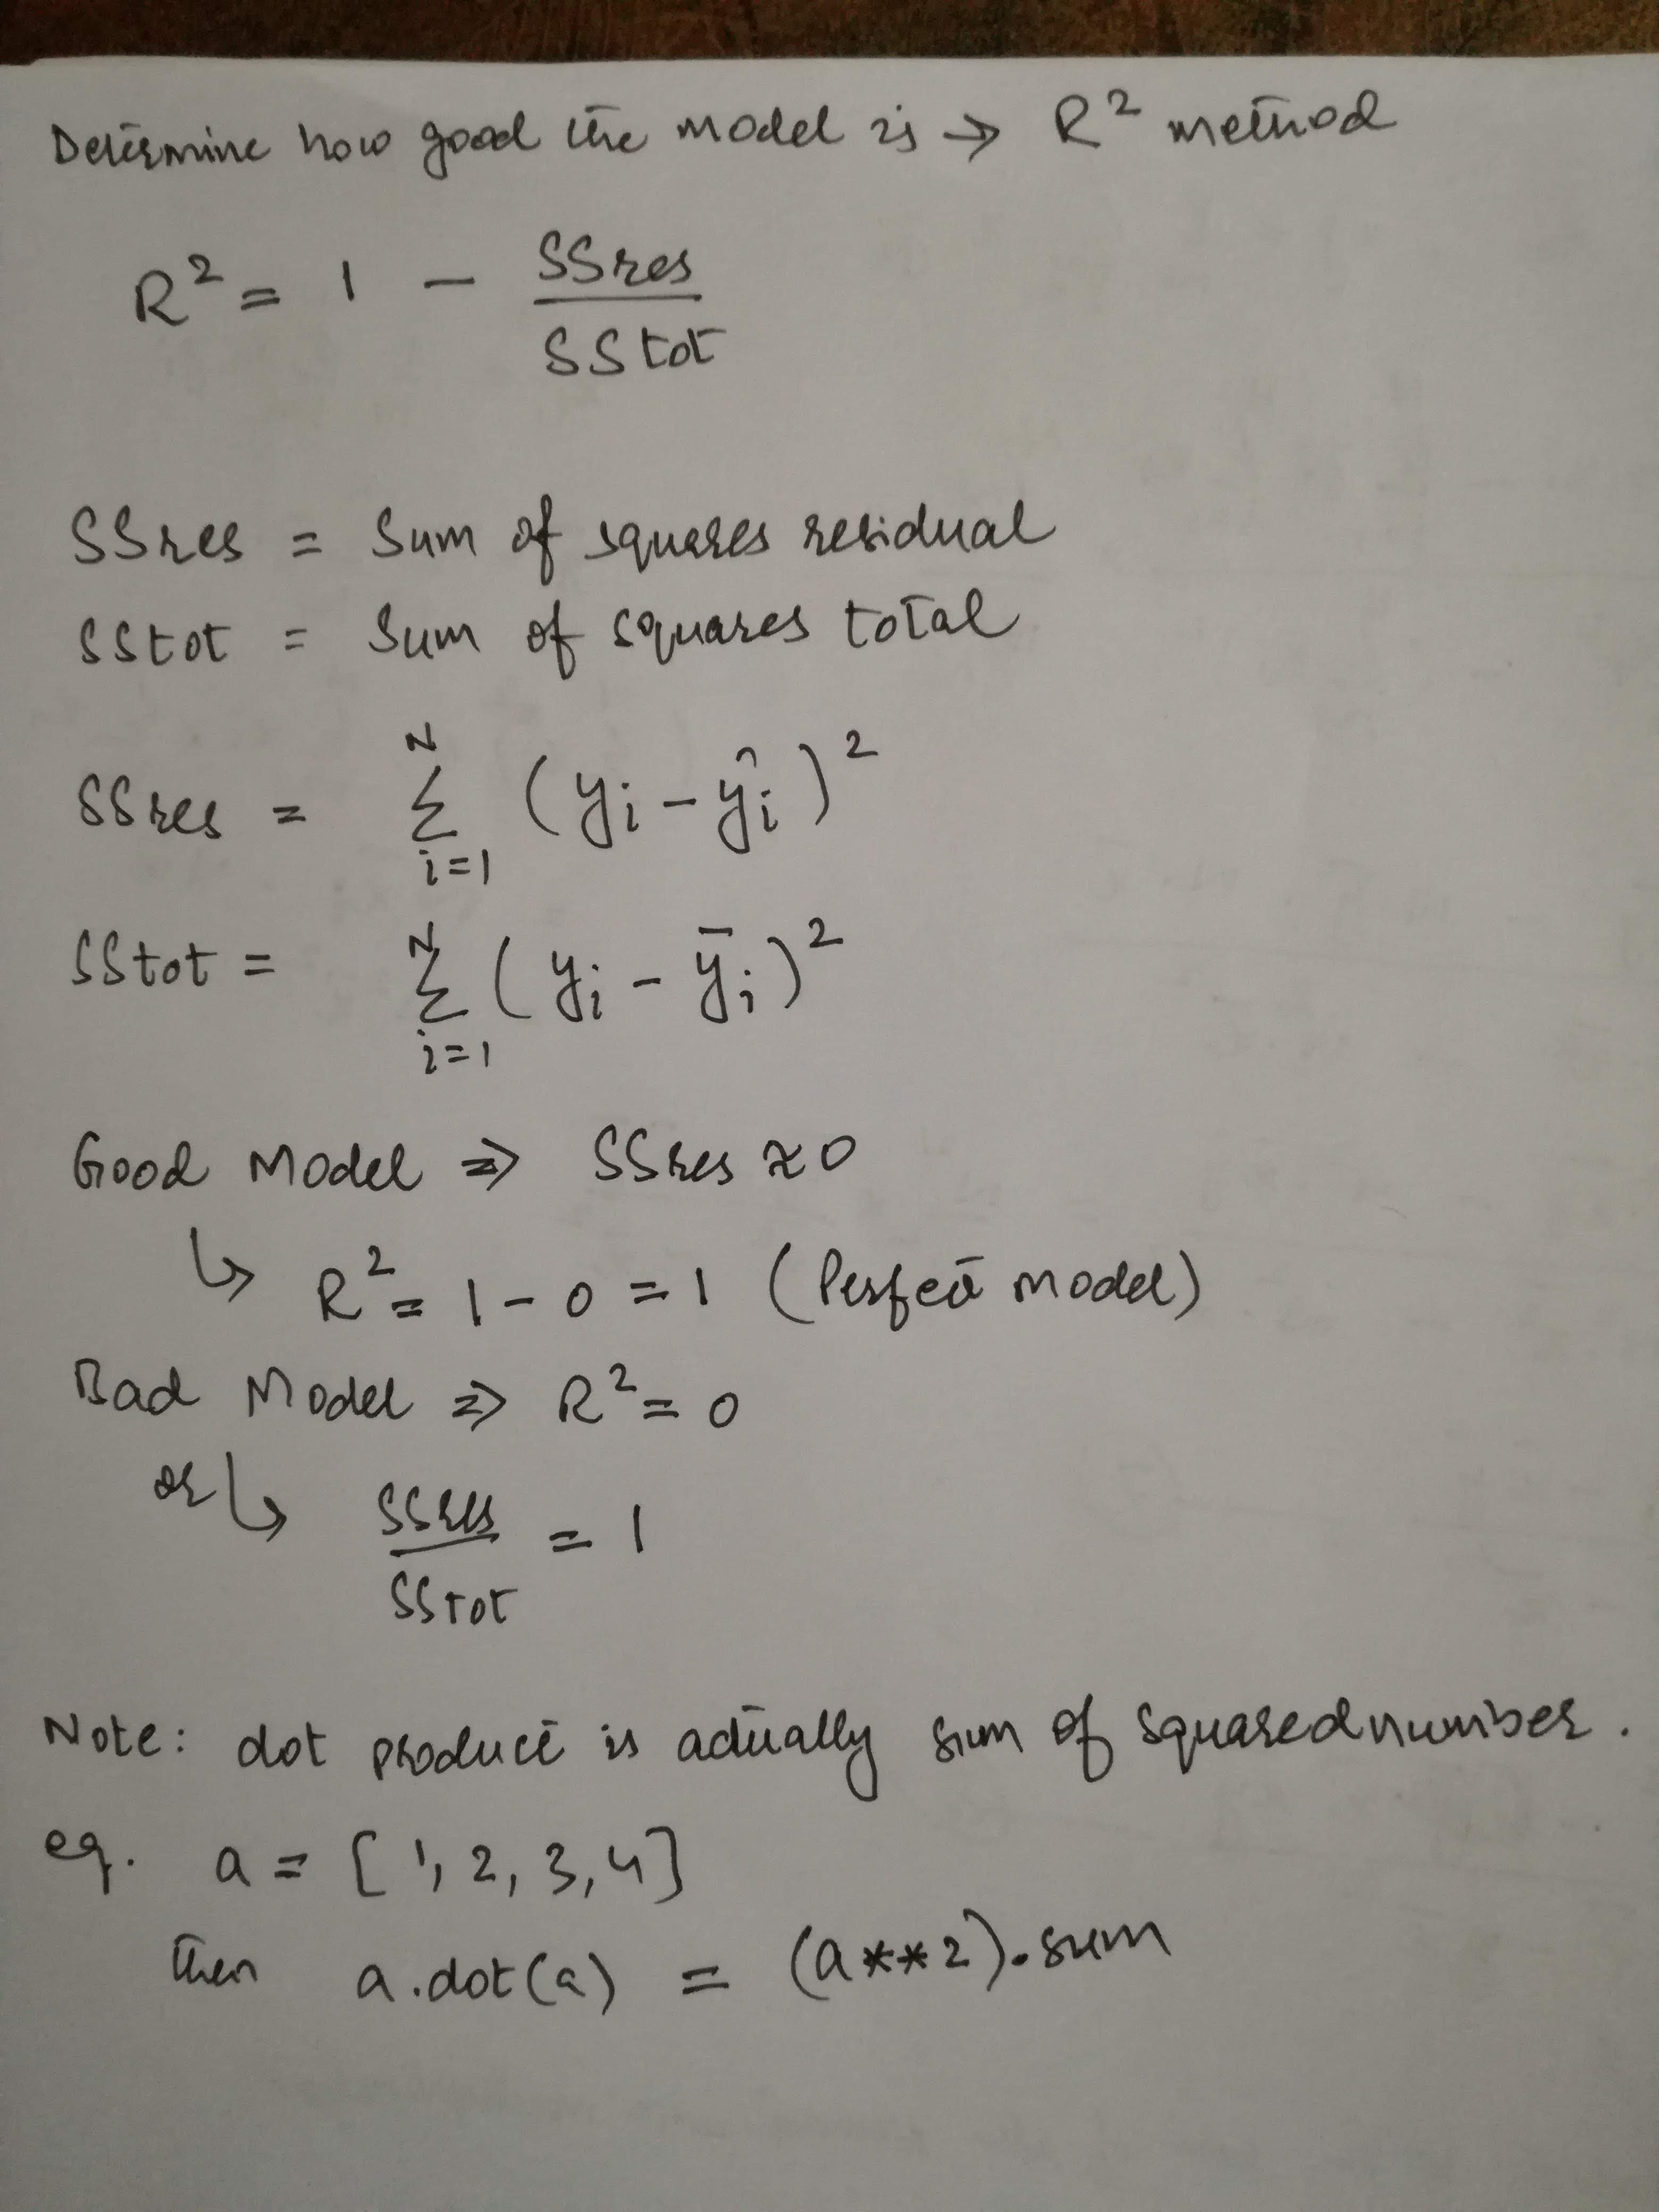 Determine how good the model is → R² method
R² = 1 - SSres / SStot
SSres = Sum of squares residual
SStot = Sum of squares total
SSres = N Σ i=1 (yi - ŷi)²
SStot = N Σ i=1 (yi - ȳi)²
Good Model ⇒ SSres ≈ 0
↳ R² = 1 - 0 = 1 (Perfect model)
Bad Model ⇒ R² = 0
or ↳ SSres / SStot = 1
Note: dot product is actually sum of squared number.
eg. a = [1, 2, 3, 4]
then a.dot(a) = (a**2).sum